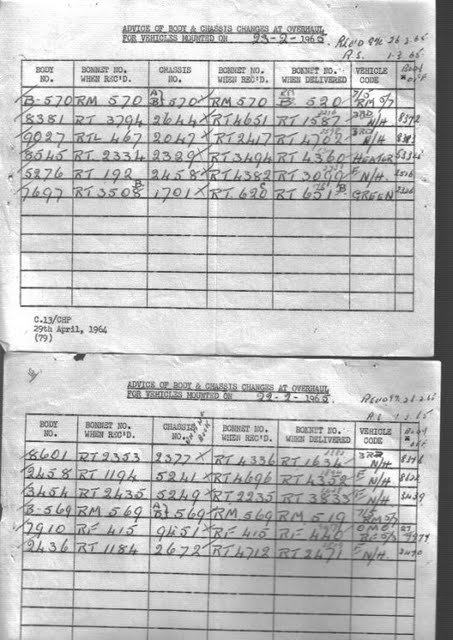 ADVICE OF BODY & CHASSIS CHANGES AT OVERHAUL
FOR VEHICLES MOUNTED ON 23-2-1965. 26.2.65
R.S. 1-3.65
BODY NO. BONNET NO. WHEN REC'D. CHASSIS NO. BONNET NO. WHEN REC'D. BONNET NO. WHEN DELIVERED VEHICLE CODE BODY OFF
B-570 RM 570 B 570 RM 570 520 7/5 RM 5/7
8381 RT 3794 2644 RT 4651 RT 1587 3RD N/H 8372
9027 RTL 467 2047 RT 2417 RT 4792 3RD N/H
8545 RT 2334 2329 RT 3494 RT 4360 HEATER
5276 RT 192 2458 RT 4382 RT 3099 N/H
7697 RT 3508 1701 RT 620 RT 651 B GREEN
C.13/CHP
29th April, 1964
(79)
ADVICE OF BODY & CHASSIS CHANGES AT OVERHAUL
FOR VEHICLES MOUNTED ON 22-2-1965
BODY NO. BONNET NO. WHEN REC'D. CHASSIS NO. BONNET NO. WHEN REC'D. BONNET NO. WHEN DELIVERED VEHICLE CODE BODY OFF
8601 RT 2353 2377 RT 4336 RT 1634 3RD N/H
2458 RT 1194 5241 RT 4696 RT 4352 N/H
3454 RT 2435 5249 RT 2235 RT 3833 N/H
B-569 RM 569 B 569 RM 569 RM 519 7/5 RM 5/7
7910 RF 415 9451 RF 415 RF 440 OMO
2436 RT 1184 2672 RT 4712 RT 2471 N/H